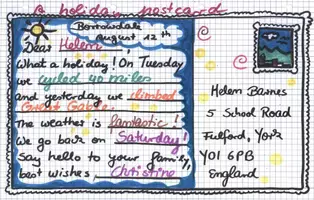 a holiday postcard
Borrowdale
August 12th
Dear Helen,
What a holiday! On Tuesday
we cycled 40 miles
and yesterday we climbed
Great Gable.
The weather is fantastic!
We go back on Saturday!
Say hello to your family,
best wishes Christine
Helen Barnes
5 School Road
Fulford, York
YO1 6PB
England